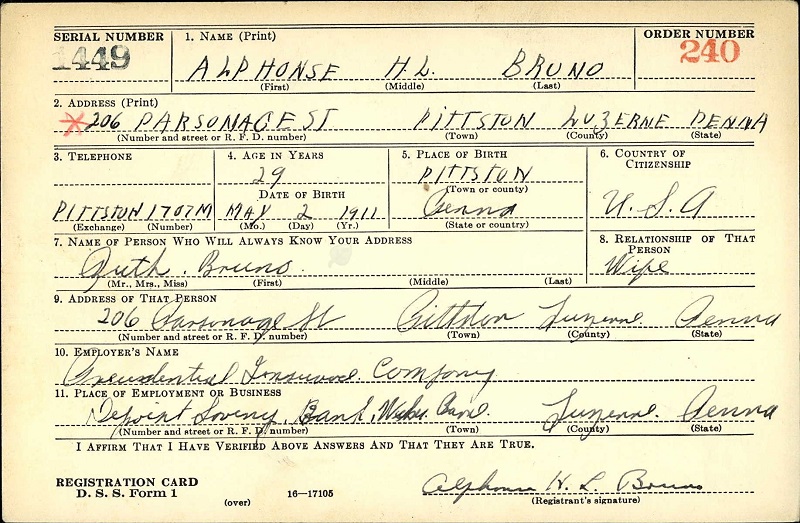 SERIAL NUMBER 1. NAME (Print) ORDER NUMBER
1449 ALPHONSE H.L. BRUNO 240
(First) (Middle) (Last)
2. ADDRESS (Print)
206 PARSONAGE ST PITTSTON LUZERNE PENNA
(Number and street or R. F. D. number) (Town) (County) (State)
3. TELEPHONE 4. AGE IN YEARS 5. PLACE OF BIRTH 6. COUNTRY OF CITIZENSHIP
29 PITTSTON
DATE OF BIRTH (Town or county)
PITTSTON 1707M MAY 2 1911 Penna U.S.A
(Exchange) (Number) (Mo.) (Day) (Yr.) (State or country)
7. NAME OF PERSON WHO WILL ALWAYS KNOW YOUR ADDRESS 8. RELATIONSHIP OF THAT PERSON
Ruth. Bruno. Wife
(Mr., Mrs., Miss) (First) (Middle) (Last)
9. ADDRESS OF THAT PERSON
206 Parsonage St Pittston Luzerne. Penna
(Number and street or R. F. D. number) (Town) (County) (State)
10. EMPLOYER'S NAME
Prudential Insurance. Company
11. PLACE OF EMPLOYMENT OR BUSINESS
Deposit Saving Bank. Luzerne. Penna
(Number and street or R. F. D. number) (Town) (County) (State)
I AFFIRM THAT I HAVE VERIFIED ABOVE ANSWERS AND THAT THEY ARE TRUE.
REGISTRATION CARD
D. S. S. Form 1 (over) 16—17105 Alphonse H. L. Bruno
(Registrant's signature)